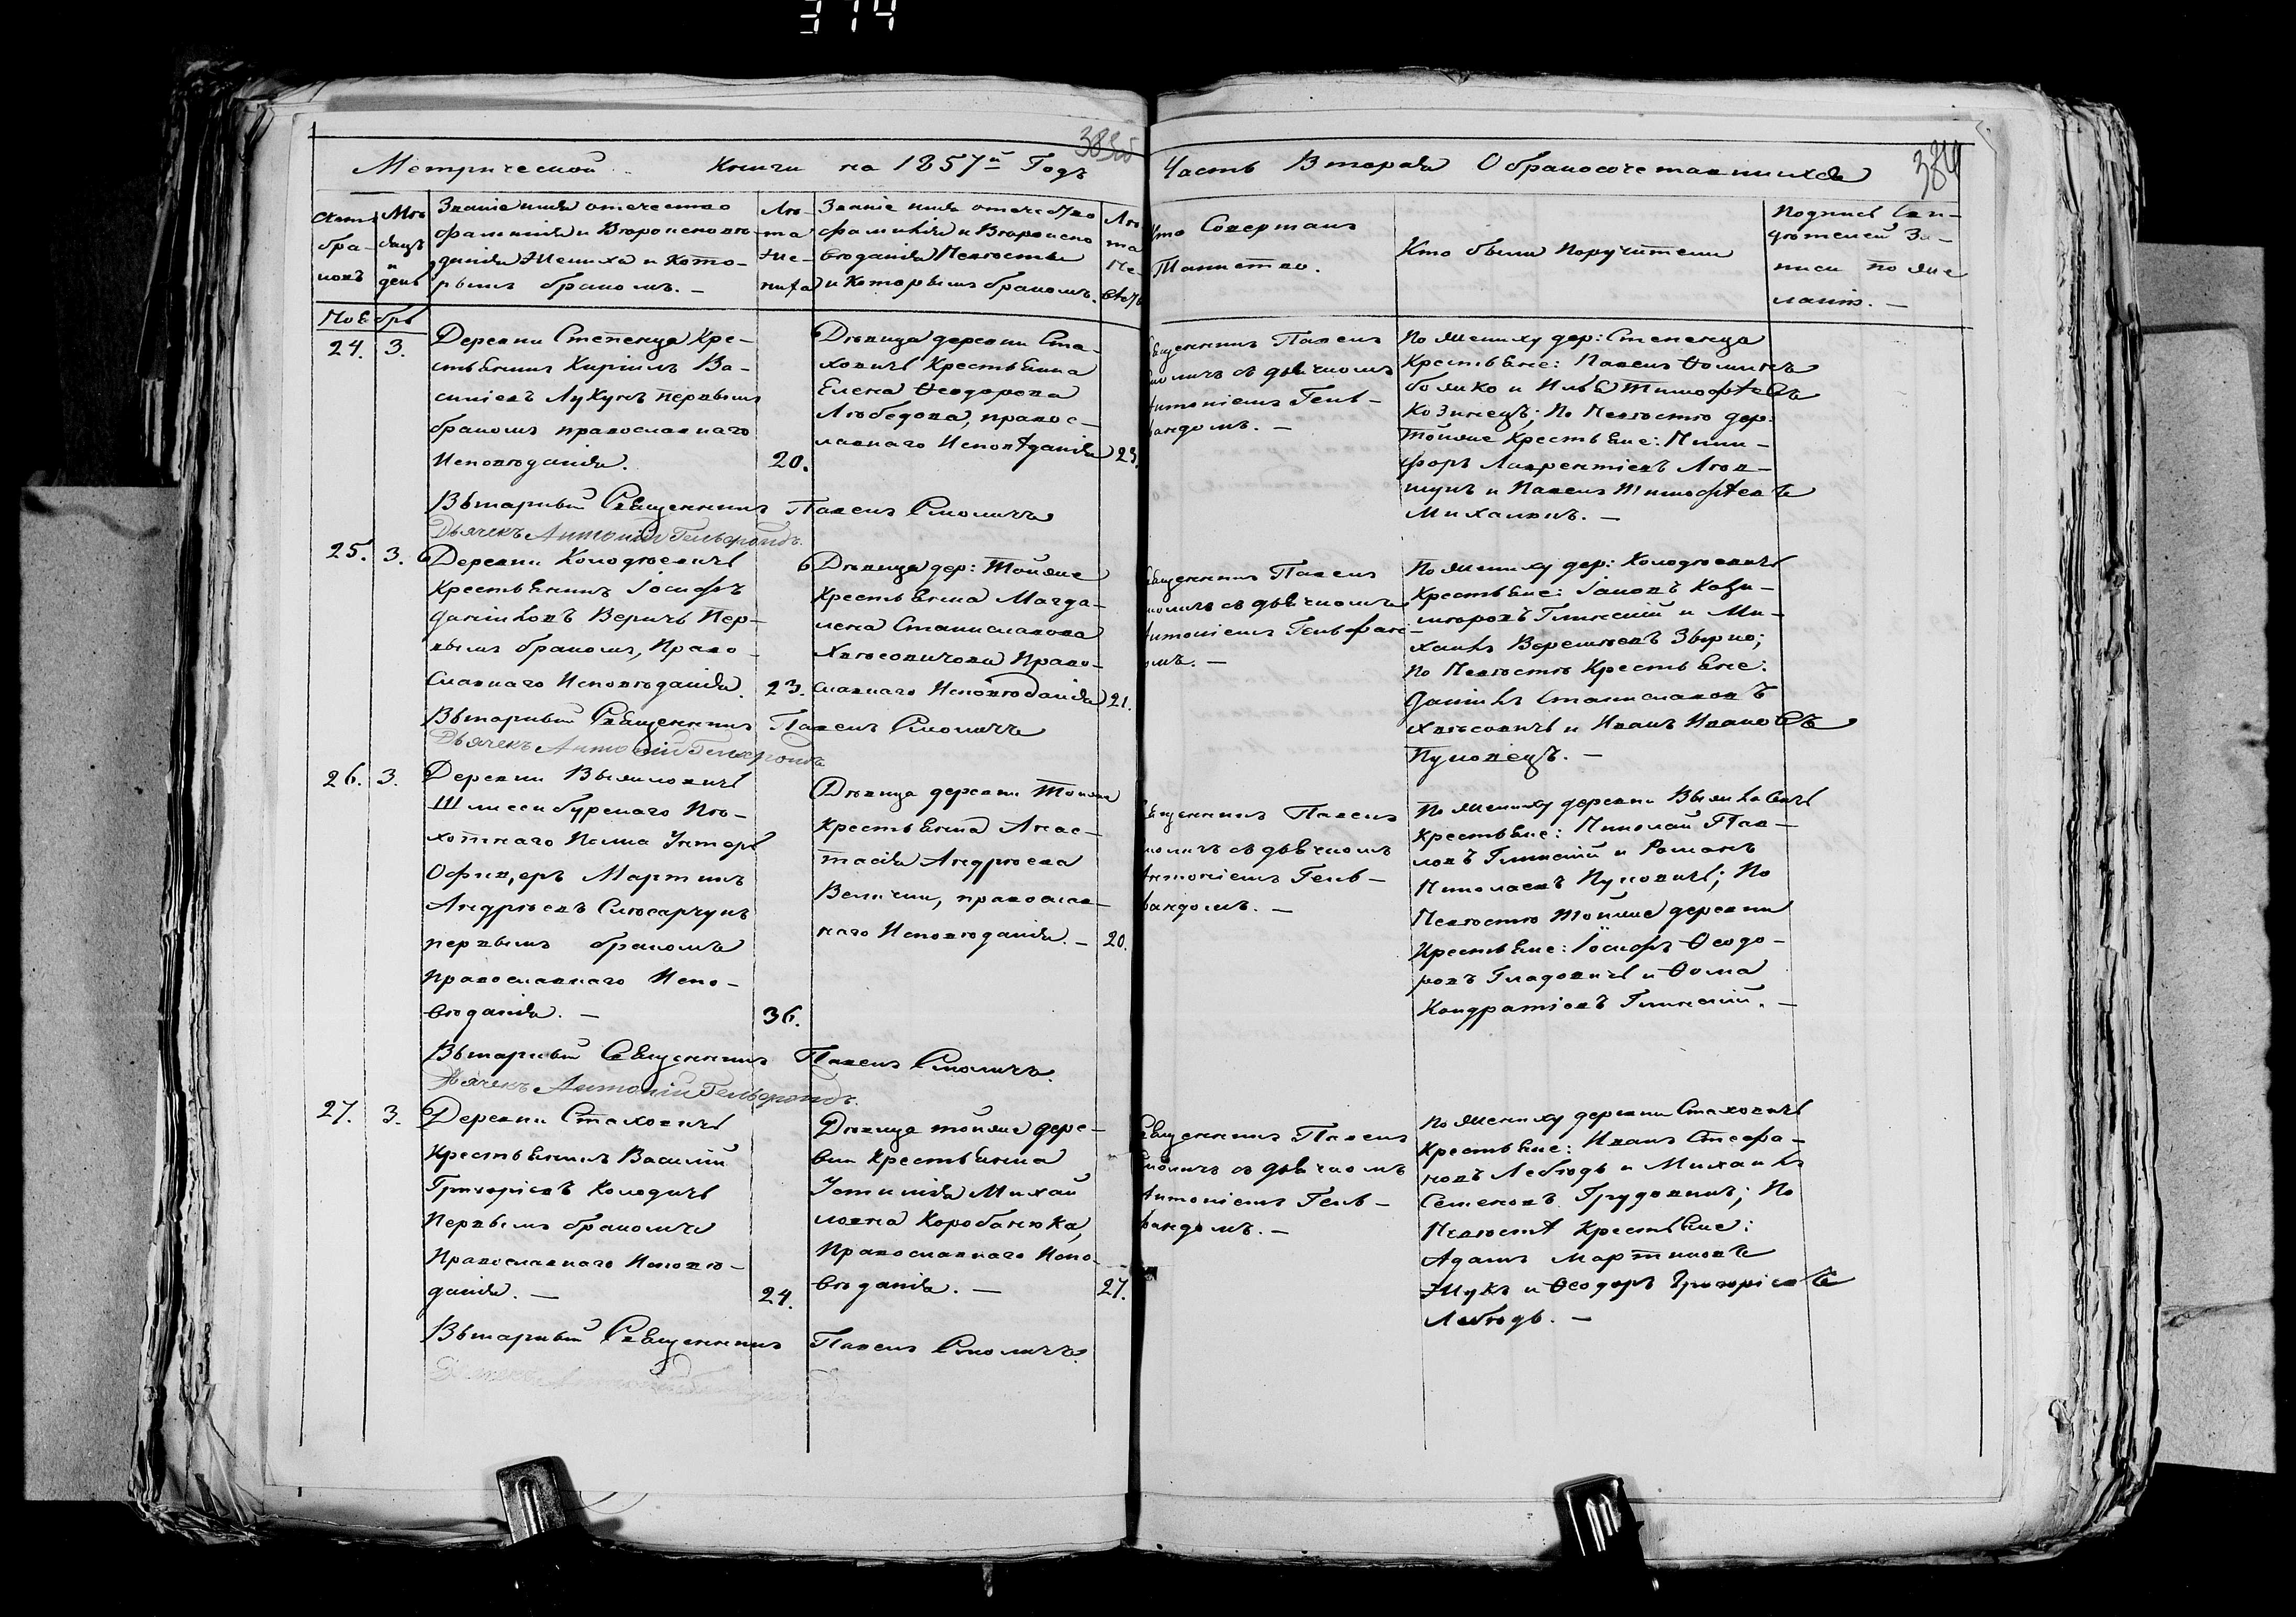 374
383об
384
Метрической Книги на 1857й Годъ
Часть Вторая О бракосочетавшихся
Счетъ
бра-
ковъ
Мѣ-
сяцъ
и
день
Званіе имя отечество
фамилія и Вѣроисповѣ-
данія Жениха и Кото-
рымъ бракомъ. –
Лѣ-
та
Же-
ниха
Званіе имя отечество
фамилія и Вѣроиспо
вѣданія Невѣсты
и Которымъ бракомъ.
Лѣ
та
Не-
вѣсты
Кто Совершалъ
Таинство.
Кто были Поручители
Подпись Сви-
дѣтелей За-
писи по же
ланію. –
Ноябрь
24. 3.
Деревни Степенца Кре-
стьянинъ Кирилъ Ва-
силіевъ Лукунъ первымъ
бракомъ православнаго
Исповѣданія.
20.
Дѣвица деревни Ста-
ховичъ Крестьянка
Елена Ѳеодорова
Лебедова, правос-
лавнаго Исповѣданія
23.
Священникъ Павелъ
Смоличъ съ дьячкомъ
Антоніемъ Гель-
вандомъ. –
По жениху дер: Степенца
Крестьяне: Павелъ Ѳоминъ
божко и Илья Тимофѣевъ
Козинецъ; По Невѣстѣ дер:
тойже Крестьяне: Ники-
форъ Лаврентіевъ Лов-
шукъ и Павелъ Тимофѣевъ
Михалинъ. –
Вытаривый Священникъ Павелъ Смоличъ
Дьячекъ Антоній Гельврандъ.
25. 3.
Деревни Холодѣевичъ
Крестьянинъ Іосифъ
даниловъ Веричъ Пер-
вымъ бракомъ, Право-
Славнаго Исповѣданія.
23.
Дѣвица дер: Тойже
Крестьянка Магда-
лена Станиславова
Хвѣсовичова Право-
славнаго Исповѣданія
21.
Священникъ Павелъ
Смоличъ съ дьячкомъ
Антоніемъ Гельфан-
домъ. –
По жениху дер: Холодѣевичъ
Крестьяне: Іаковъ Кази-
міровъ Глинскій и Ми-
хаилъ Веремѣевъ Звѣрко;
По Невѣстѣ Крестьяне:
Даниилъ Станиславовъ
Хвѣсовичъ и Иванъ Ивановъ
Пуковецъ. –
Вытаривый Священникъ Павелъ Смоличъ
Дьячекъ Антоній Гельврандъ
26. 3.
Деревни Выжловичъ
Шлиссибурскаго Пѣ-
хотнаго Полка Унтеръ
Офицеръ Мартинъ
Андрѣевъ Слюсарчукъ
первымъ бракомъ
православнаго Испо-
вѣданія. –
36.
Дѣвица деревни Тойже
Крестьянка Анас-
тасія Андрѣева
Величка, православ-
наго Исповѣданія. –
20.
Священникъ Павелъ
Смоличъ съ дьячкомъ
Антоніемъ Гель-
вандомъ. –
По жениху деревни Выжловичъ
Крестьяне: Николай Пав-
ловъ Глинскій и Романъ
Николаевъ Пуковичъ; По
Невѣстѣ тойже деревни
Крестьяне: Іосифъ Ѳеодо-
ровъ Гладовичъ и Ѳома
Кондратіевъ Глинскій. –
Вытаривый Священникъ Павелъ Смоличъ.
Дьячекъ Антоній Гельврандъ.
27. 3.
Деревни Стаховичъ
Крестьянинъ Василій
Григоріевъ Колодичъ
Первымъ бракомъ
Православнаго Исповѣ-
данія. –
24.
Дѣвица тойже дере-
вни Крестьянка
Устинія Михай
ловна Коробанюка,
Православнаго Испо-
вѣданія. –
27.
Священникъ Павелъ
Смоличъ съ дьячкомъ
Антоніемъ Гель-
вандомъ. –
По жениху деревни Стаховичъ
Крестьяне: Иванъ Стефа-
новъ Лебѣдь и Михаилъ
Семеновъ Грудовикъ; По
Невѣстѣ Крестьяне:
Адамъ Мартиновъ
Жукъ и Ѳеодоръ Григоріевъ
Лебѣдь. –
Вытаривый Священникъ Павелъ Смоличъ.